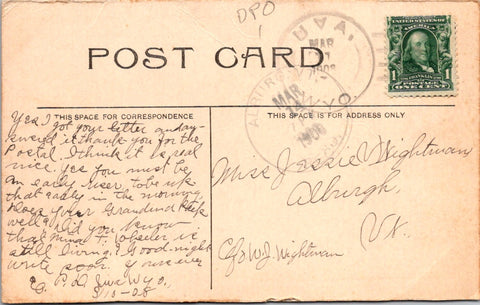 DPO
1
POST CARD
UVA
MAR
1908
WYO.
ALBURG
MAR
1908
UNITED STATES OF AMERICA
1 1
POSTAGE
ONE CENT
THIS SPACE FOR CORRESPONDENCE
THIS SPACE IS FOR ADDRESS ONLY
Yes I
got your letter and
swered it thank you for the
Postal. I think it is real
nice. yes you must be
an early riser to be up
that early in the morning
does your Grandma keep
well? did you know
that Minar T. Wheeler is
still living? Good-night
write soon. Yours ever
P. O. Uva Wyo.,
3/15-08
Miss Jessie Wightman
Alburgh,
Vt.
C/o W. J. Wightman